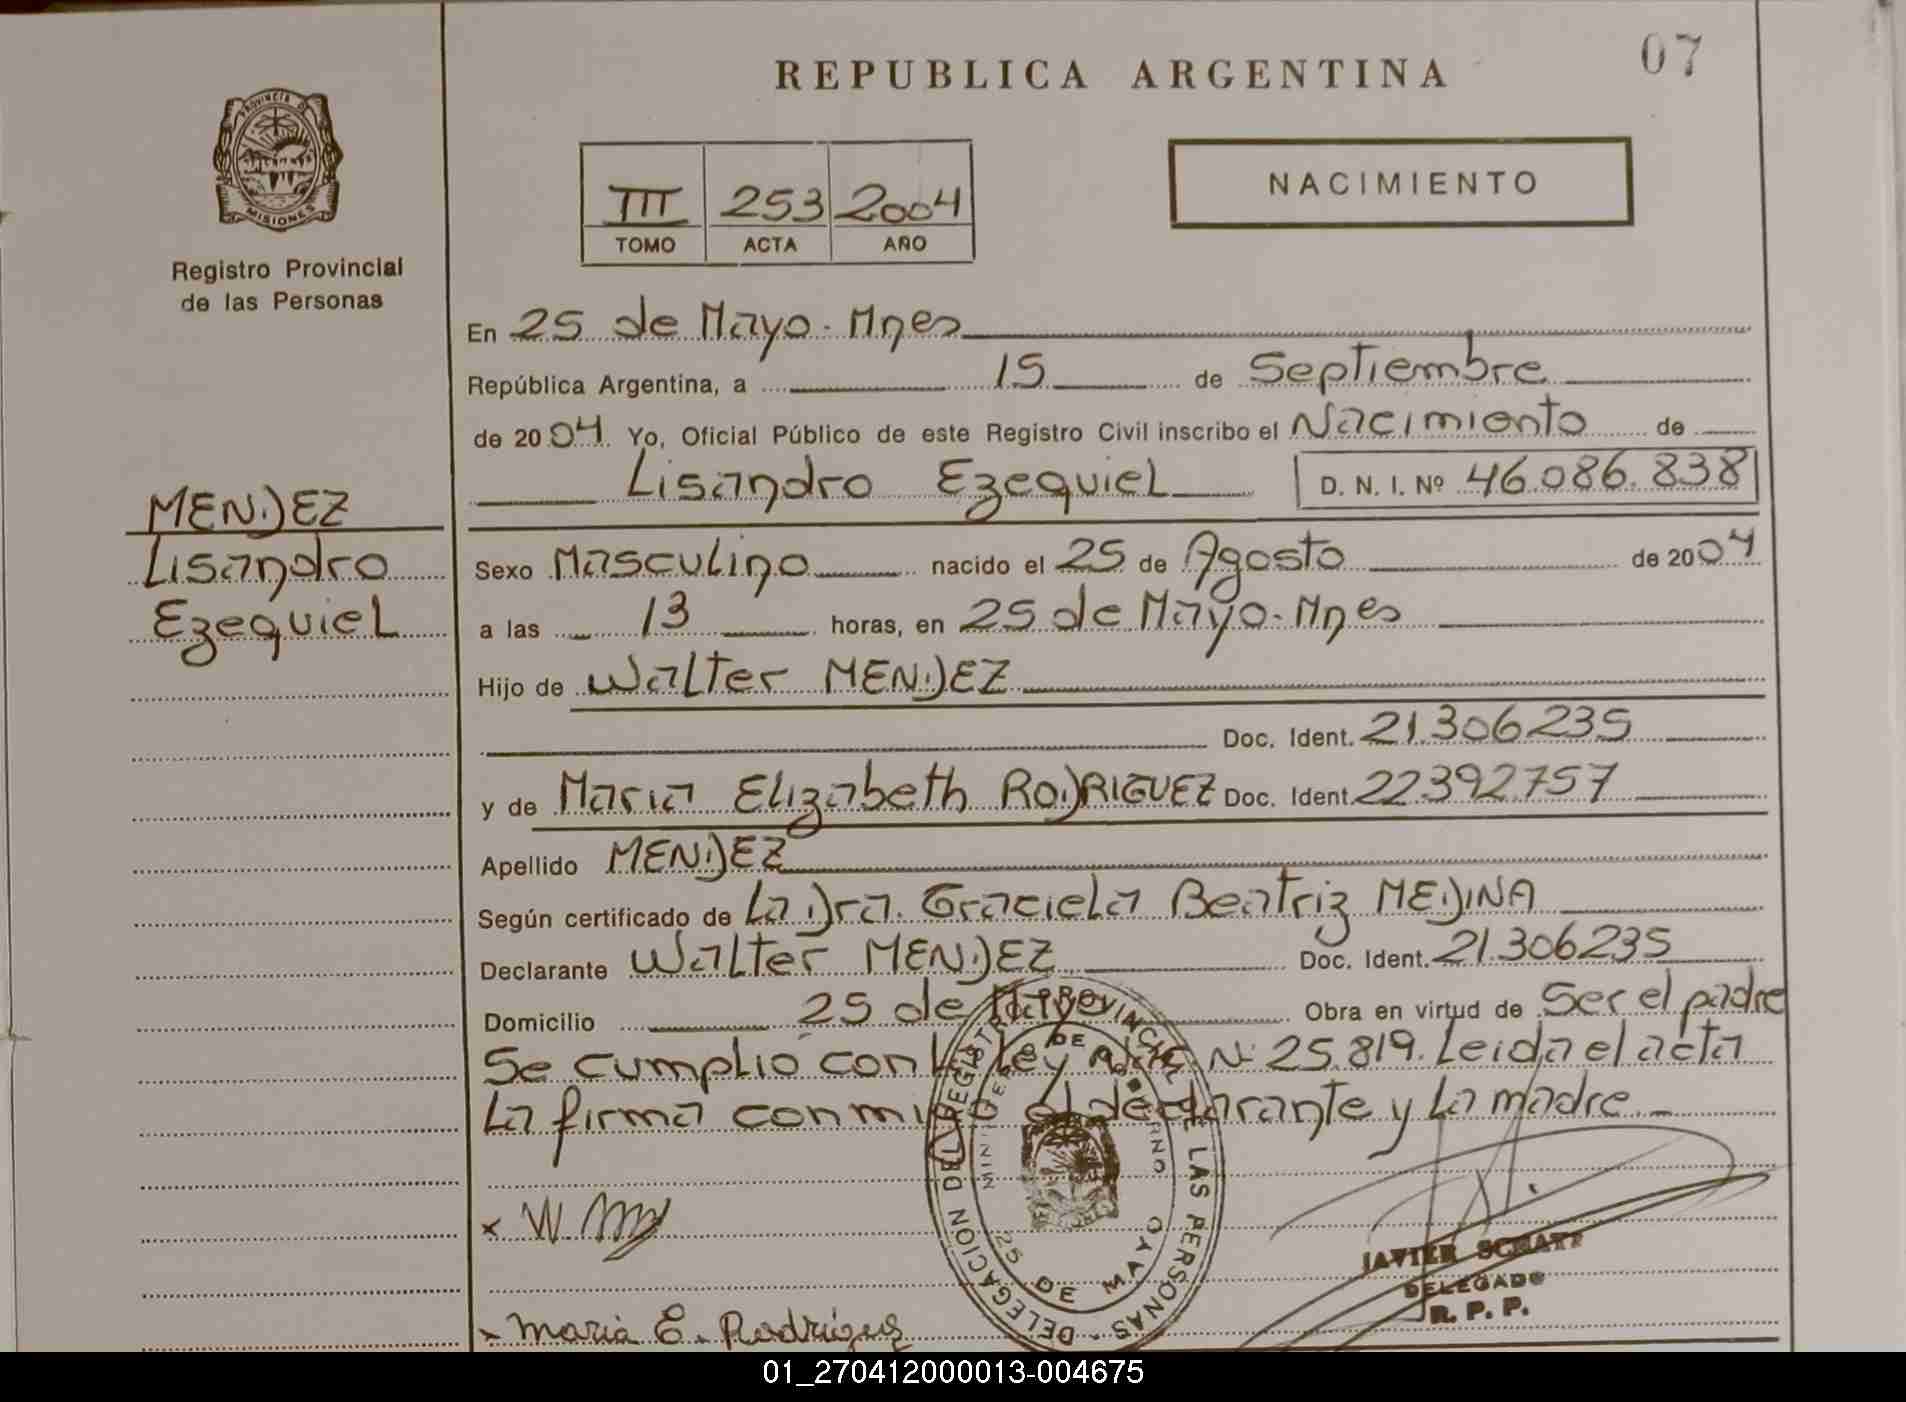 07
REPUBLICA ARGENTINA
PROVINCIA DE
MISIONES
Registro Provincial
de las Personas
NACIMIENTO
III 253 2004
TOMO ACTA AÑO
En 25 de Mayo - Mnes
República Argentina, a 15 de Septiembre
de 2004. Yo, Oficial Público de este Registro Civil inscribo el Nacimiento de
Lisandro Ezequiel D. N. I. Nº 46.086.838
MENDEZ
Lisandro
Ezequiel
Sexo Masculino nacido el 25 de Agosto de 2004
a las 13 horas, en 25 de Mayo - Mnes
Hijo de Walter MENDEZ
Doc. Ident. 21.306235
y de Maria Elizabeth RODRIGUEZ Doc. Ident. 22392757
Apellido MENDEZ
Según certificado de La Dra. Graciela Beatriz MEDINA
Declarante Walter MENDEZ Doc. Ident. 21.306235
Domicilio 25 de Mayo Obra en virtud de Ser el padre
Se cumplio con la ley Nac. Nº 25.819. Leida el acta
La firma conmigo el declarante y La madre
DELEGACIÓN DEL REGISTRO PROVINCIAL DE LAS PERSONAS
25 DE MAYO
x W.
JAVIER SCHAFF
DELEGADO
R. P. P.
x Maria E. Rodriguez
01_270412000013-004675